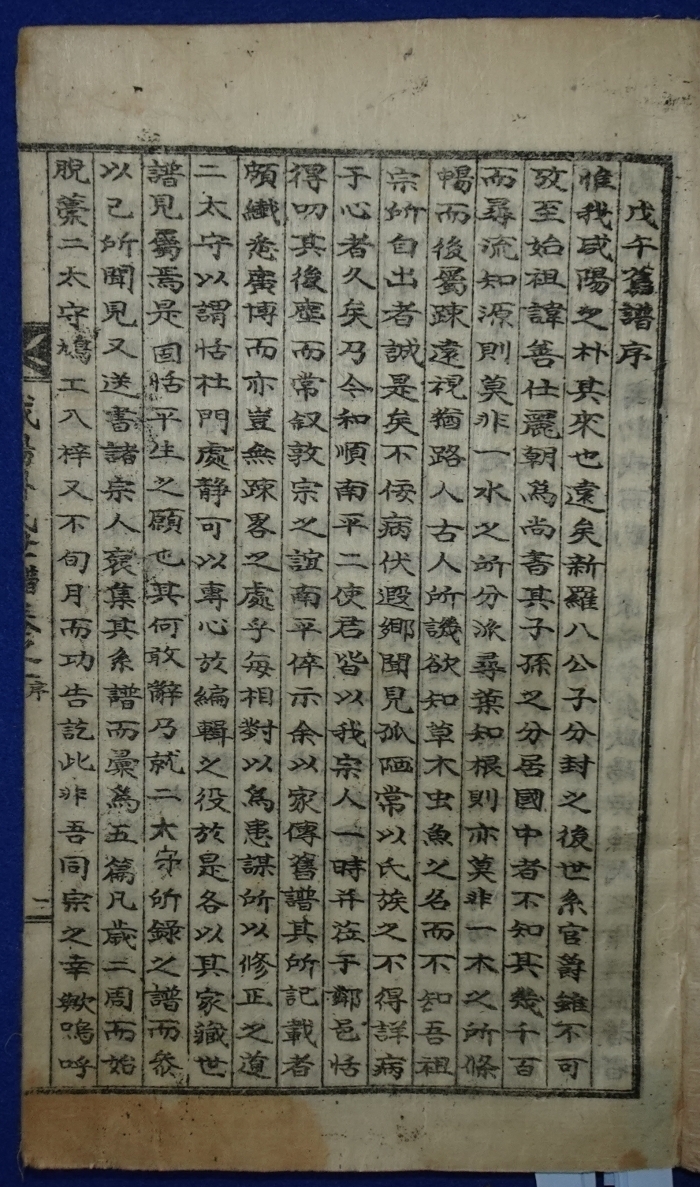 戊午舊譜序
惟我咸陽之朴其來也遠矣新羅八公子分封之後世系官爵雖不可
攷至始祖諱善仕麗朝爲尚書其子孫之分居國中者不知其幾千百
而尋流知源則莫非一水之所分派尋葉知根則亦莫非一木之所條
暢而後屬踈遠視猶路人古人所譏欲知草木虫魚之名而不知吾祖
宗所自出者誠是矣不佞病伏遐鄉聞見孤陋常以氏族之不得詳病
于心者久矣乃今和順南平二使君皆以我宗人一時并莅于鄰邑恬
得叨其後塵而常叙敦宗之誼南平倅示余以家傳舊譜其所記載者
頗纖悉廣博而亦豈無踈畧之處乎每相對以爲患謀所以修正之道
二太守以謂恬杜門處静可以專心於編輯之役於是各以其家藏世
譜見屬焉是固恬平生之願也其何敢辭乃就二太守所錄之譜而叅
以己所聞見又送書諸宗人裒集其系譜而彙爲五篇凡歲二周而始
脫藁二太守鳩工入梓又不旬月而功告訖此非吾同宗之幸歟嗚呼
咸陽朴氏世譜卷之一 序 二